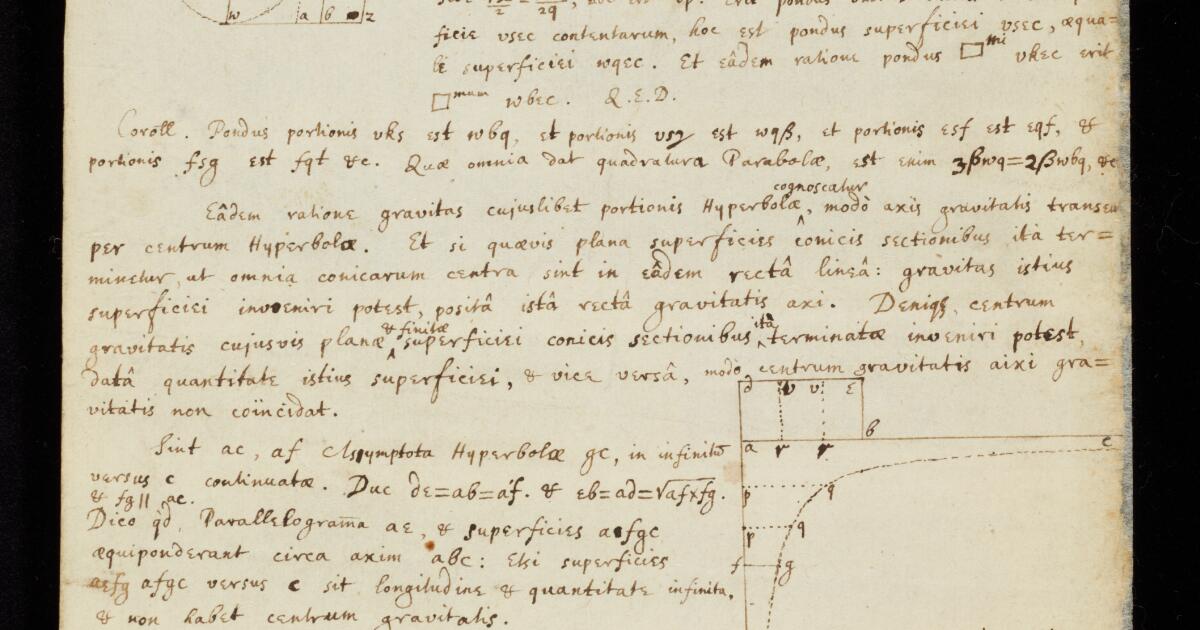 ficie vsec contentarum, hoc est pondus superficiei vsec, æqua=
li superficiei wqec. Et eâdem ratione pondus □mi vkec erit
□mum wbec. Q.E.D.
Coroll. Pondus portionis vks est wbq, et portionis vsy est wqß, et portionis esf est eqf, &
portionis fsg est fqt &c. Quæ omnia dat quadratura Parabolæ, est enim 3ßwq=2ßwbq, &c
cognoscatur
Eâdem ratione gravitas cujuslibet portionis Hyperbolæ, modò axis gravitatis transeat
per centrum Hyperbolæ. Et si quævis plana superficies conicis sectionibus ità ter=
minetur, ut omnia conicarum centra sint in eâdem rectâ lineâ: gravitas istius
superficiei inveniri potest, positâ istâ rectâ gravitatis axi. Deniqꝫ centrum
& finitæ ità
gravitatis cujusvis planæ superficiei conicis sectionibus terminatæ inveniri potest,
datâ quantitate istius superficiei, & vice versâ, modò centrum gravitatis aixi gra=
vitatis non coïncidat.
d v v ε
b
Sint ac, af Assymptota Hyperbolæ gc, in infinitū
a r r c
versus c continuatæ. Duc dε=ab=af. & εb=ad=√afxfg.
& fg || ac.
p q
Dico qd Parallelogram̄a aε, & superficies acfgc
p q
æquiponderant circa axim abc: Etsi superficies
f g
aefg afgc versus c sit longitudine & quantitate infinita,
& non habet centrum gravitatis.
w a b z